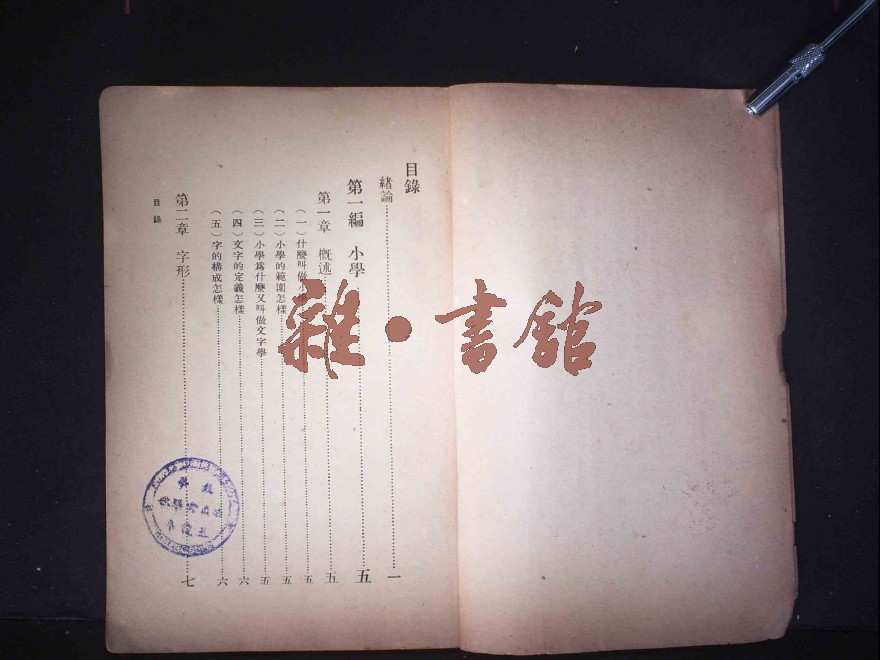 目錄
緒論……一
第一編 小學……五
第一章 概述……五
(一)什麼叫做小……五
(二)小學的範圍怎樣……五
(三)小學爲什麼又叫做文字學……五
(四)文字的定義怎樣……六
(五)字的構成怎樣……六
第二章 字形……七
目錄
雜·書館